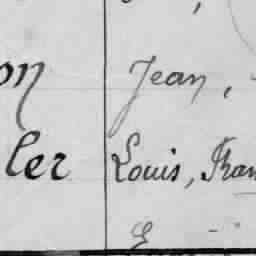 on Jean,
ler Louis, Fran